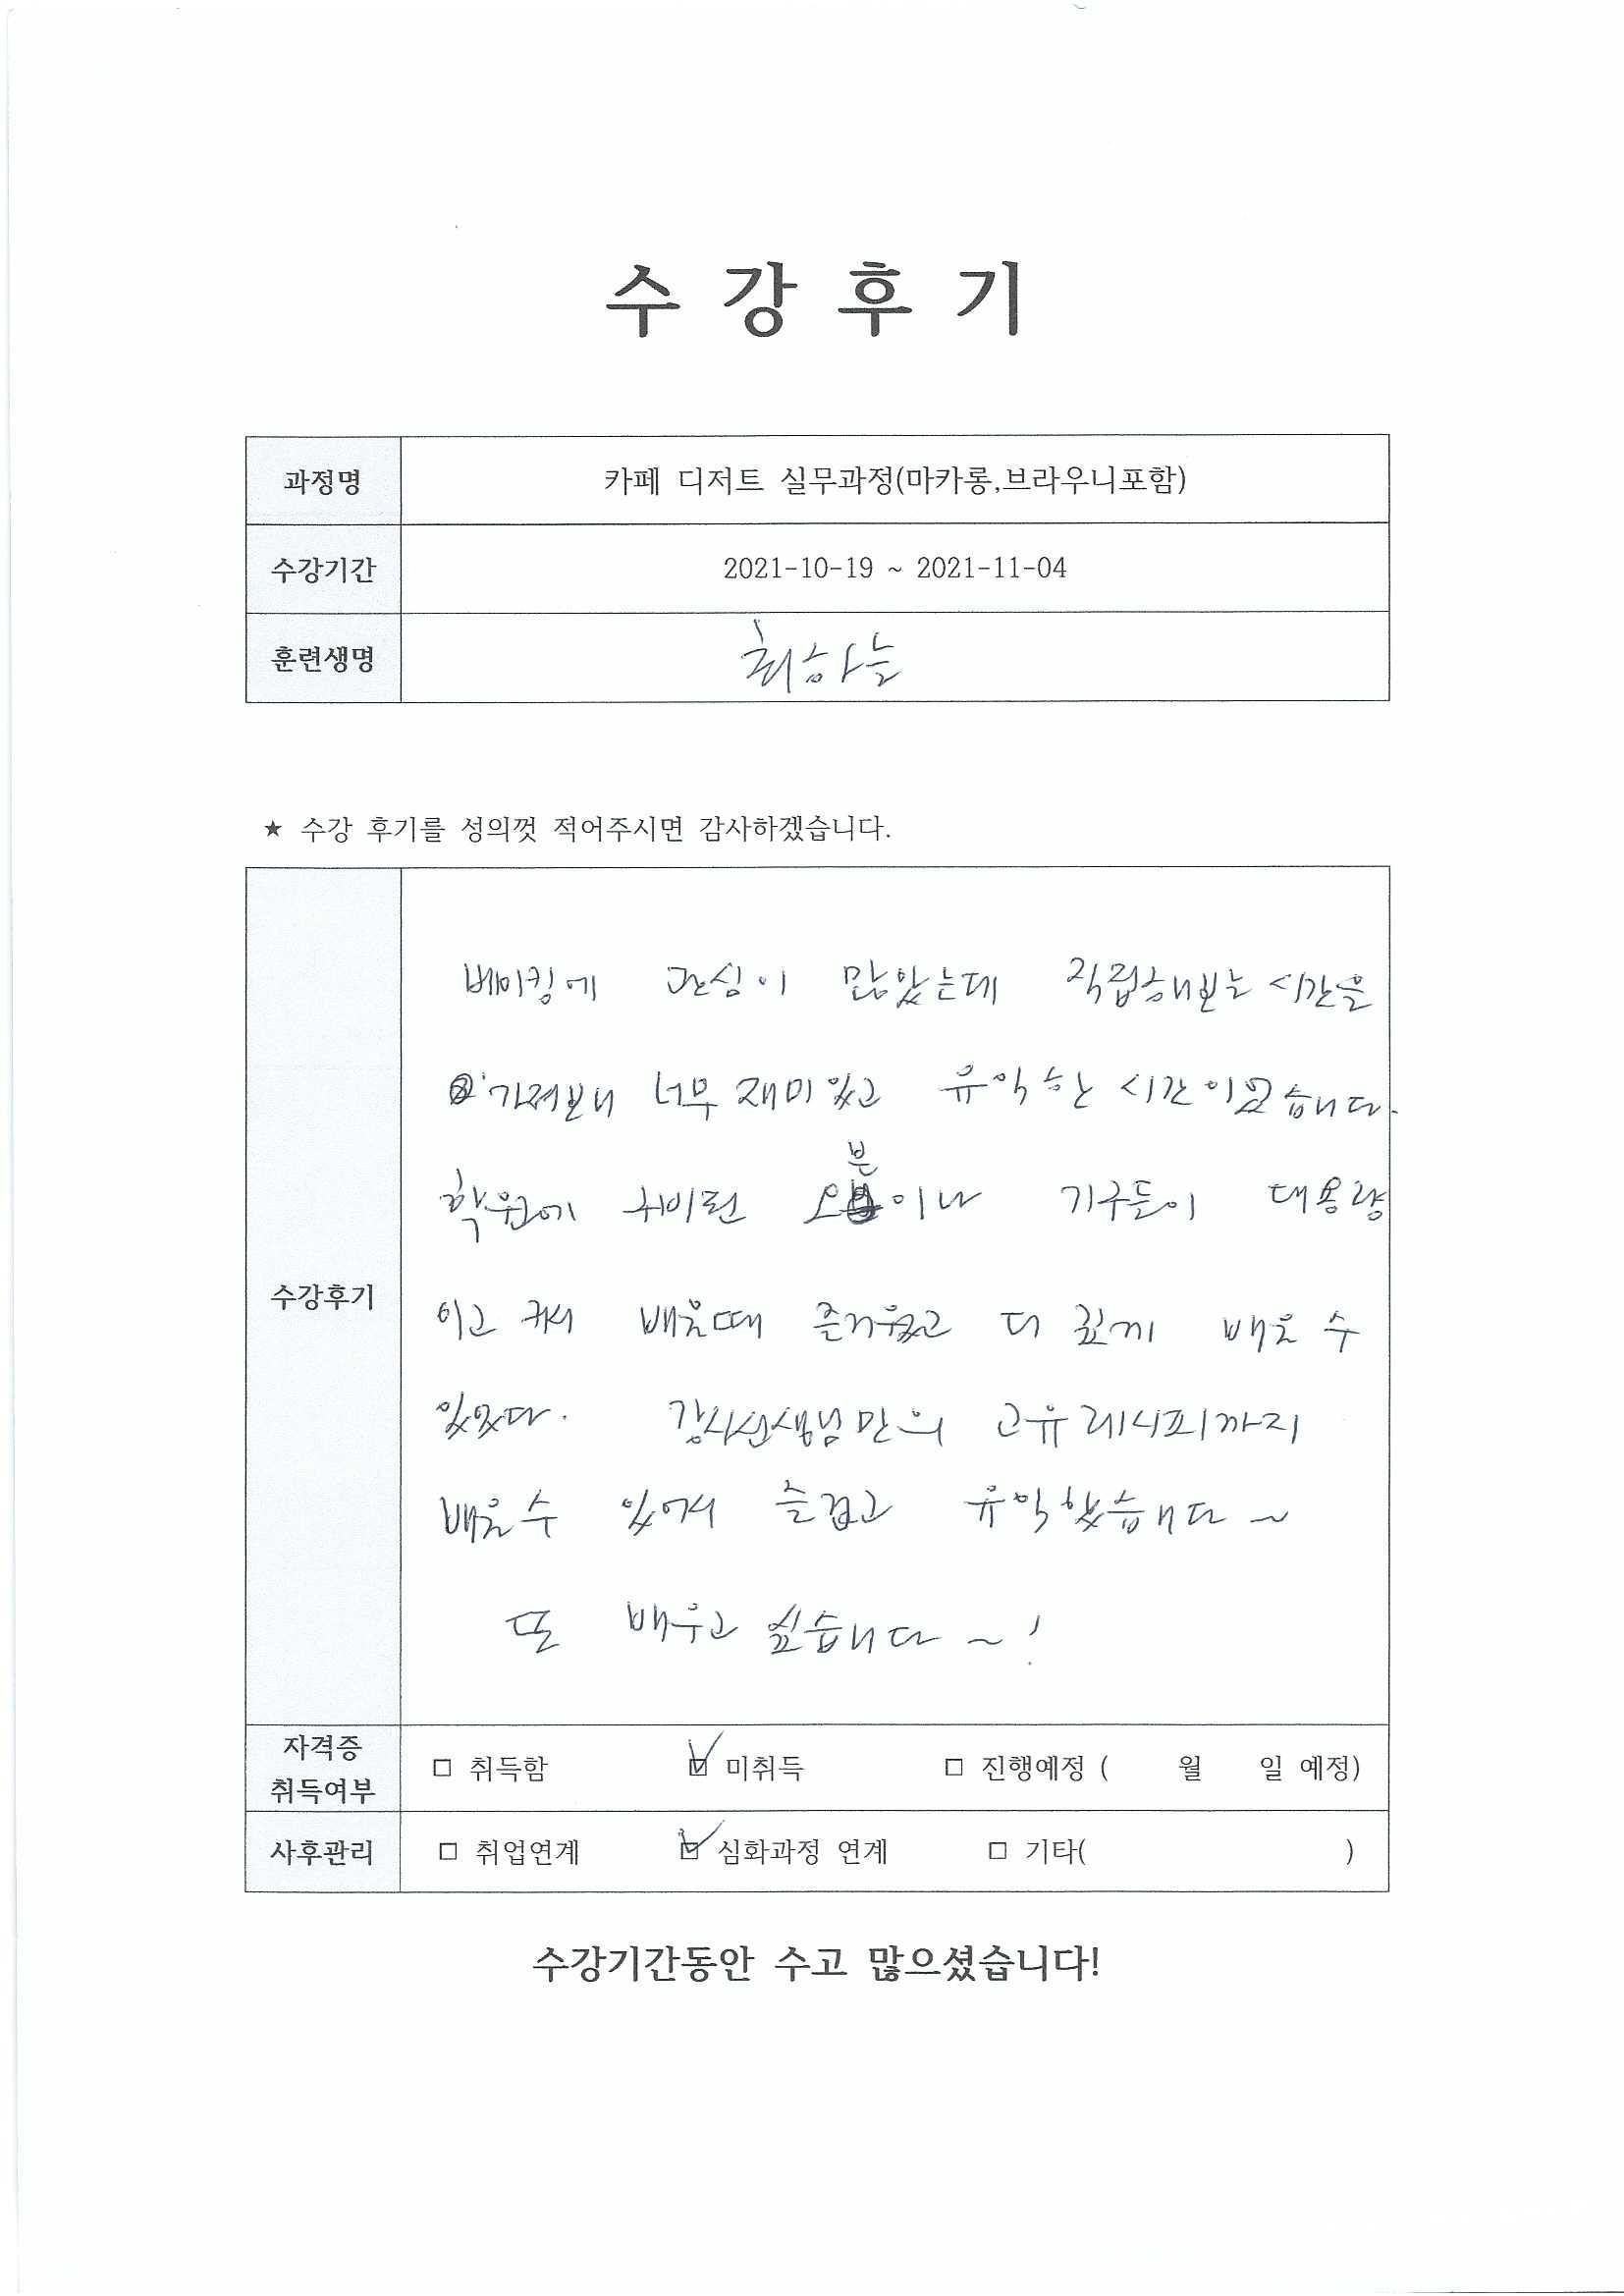 수 강 후 기
과정명 카페 디저트 실무과정(마카롱,브라우니포함)
수강기간 2021-10-19 ~ 2021-11-04
훈련생명 최하늘
★ 수강 후기를 성의껏 적어주시면 감사하겠습니다.
수강후기
베이킹에 관심이 많았는데 직접해보는 시간을
가져보니 너무 재미있고 유익한 시간이었습니다.
학원에 구비된 오븐이나 기구들이 대용량
이고 커서 배울때 즐거웠고 더 깊게 배울 수
있었다. 강사선생님만의 고유레시피까지
배울 수 있어서 즐겁고 유익했습니다~
또 배우고 싶습니다~!
자격증 취득여부 □ 취득함 ☑ 미취득 □ 진행예정 ( 월 일 예정)
사후관리 □ 취업연계 ☑ 심화과정 연계 □ 기타( )
수강기간동안 수고 많으셨습니다!